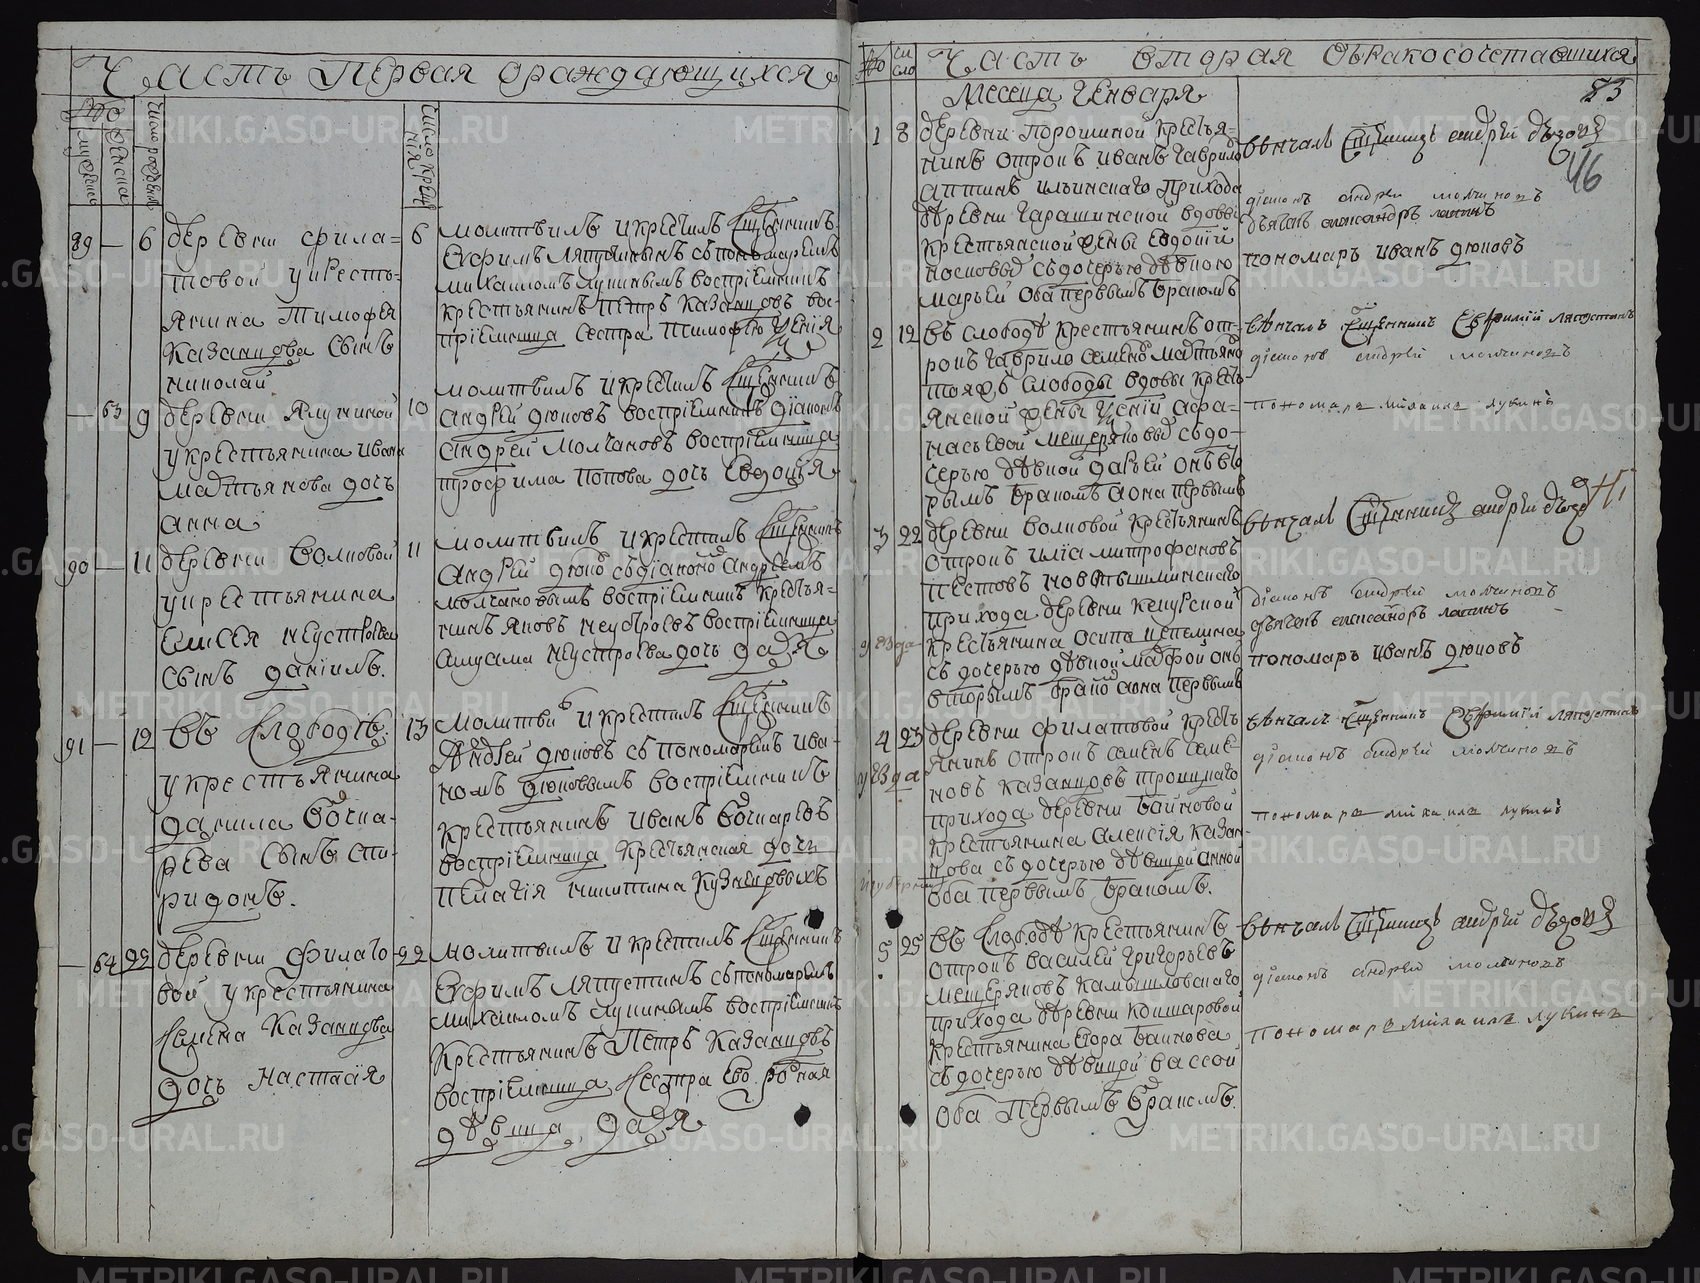 Часть Первая ораждающихся
число рожденія
число крщенія
89 — 6 деревни Фила=
товой у кресть-
янина Тимофея
Казанцова сынъ
николай
6 молитвилъ и крестилъ Священникъ
Ефримъ Ляпустинъ съ пономаремъ
михаиломъ лукинымъ воспріемникъ
крестьянинъ Петръ Казанцовъ вос-
пріемница сестра Тимофѣю Ксенія
— 63 9 деревни Ялуниной
у крестьянина Ивана
мартьянова дочь
анна
10 молитвилъ и крестилъ Священникъ
Андрей дюковъ воспріемникъ діаконъ
андрей молчановъ воспріемница
трофима Попова дочь Евдокія
90 — 11 деревни Волковой
у крестьянина
Елисея неустроева
сынъ даніилъ.
11 молитвилъ и крестилъ Священникъ
Андрей дюковъ съ діакономъ андреемъ
молчановымъ воспріемникъ крестья-
нинъ яковъ неустроевъ воспріемница
неустроева дочь дарья
91 — 12 въ Слободѣ
у крестьянина
данила Бочка-
рева сынъ спи-
ридонъ.
13 молитви и крестилъ Священникъ
Андрей дюковъ съ пономаремъ ива-
номъ дюковымъ воспріемникъ
крестьянинъ Иванъ Бочкаревъ
воспріемница крестьянская дочь
Пелагія никитина Кузнецовыхъ
— 64 22 деревни Филато-
вой у крестьянина
Семена Казанцова
дочь Настасія
22 молитвилъ и крестилъ Священникъ
Ефримъ Ляпустинъ съ пономаремъ
михаиломъ лукинымъ воспріемникъ
Крестьянинъ Петръ Казанцовъ
воспріемница Сестра Ево родная
дѣвица дарья
число
Часть вторая обракосочетавшихся
Месеца Генваря
83
46
1 8 деревни Порошиной крестья-
нинъ отрокъ иванъ гаврило
лаптинъ ильинскаго прихода
деревни гарашинской вдовы
крестьянской жены Евдокіи
носковой съ дочерью дѣвкою
марьей оба первымъ бракомъ
вѣнчалъ Священникъ андрей дюковъ
діаконъ андрей молчановъ
дьячекъ александръ лапинъ
пономарь иванъ дюковъ
2 12 въ слободѣ крестьянинъ от-
рокъ гаврило семеновъ мартьяновъ
тояжъ слободы вдовы кресть-
янской жены Ксеніи афа-
насьевой мещеряковой съ до-
черью дѣвкой дарьей онъ вто
рымъ бракомъ а она первымъ
вѣнчалъ священникъ Ефримій ляпустинъ
діаконъ андрей молчановъ
пономарь михаилъ лукинъ
3 22 деревни волковой крестьянинъ
отрокъ иліа митрофановъ
Пестовъ новопышминскаго
прихода деревни кекурской
уезда крестьянина осипа цепелина
съ дочерью дѣвкой марфой онъ
вторымъ бракомъ а она первымъ
вѣнчалъ Священникъ андрей дюковъ
діаконъ андрей молчановъ
дьячекъ александръ лапинъ
пономарь иванъ дюковъ
4 23 деревни филатовой кресть-
янинъ отрокъ семенъ семе-
новъ казанцовъ троицкаго
уезда
прихода деревни байновой
крестьянина алексія казан-
цова съ дочерью дѣвицей анной
оба первымъ бракомъ.
вѣнчалъ священникъ Ефримій ляпустинъ
діаконъ андрей молчановъ
пономарь михаилъ лукинъ
5 25 въ Слободѣ крестьянинъ
отрокъ василей григорьевъ
мещеряковъ камышловскаго
прихода деревни кошаровой
крестьянина егора баинова
съ дочерью дѣвицей вассой
оба первымъ бракомъ.
вѣнчалъ Священникъ андрей дюковъ
діаконъ андрей молчановъ
пономарь михаилъ лукинъ
METRIKI.GASO-URAL.RU